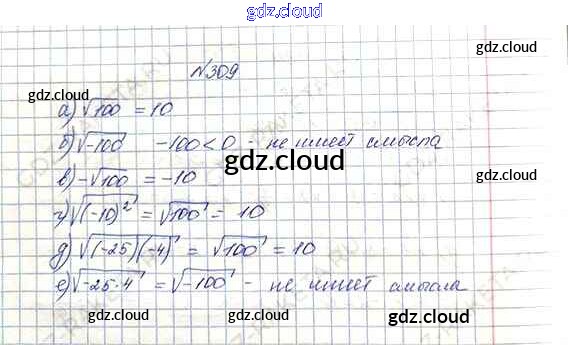 gdz.cloud
gdz.cloud
№309
gdz.cloud
а) √100 = 10
б) √-100 -100<0 - не имеет смысла
gdz.cloud
в) -√100 = -10
г) √(-10)² = √100 = 10
gdz.cloud
д) √(-25)(-4) = √100 = 10
е) √-25·4 = √-100 - не имеет смысла
gdz.cloud gdz.cloud gdz.cloud